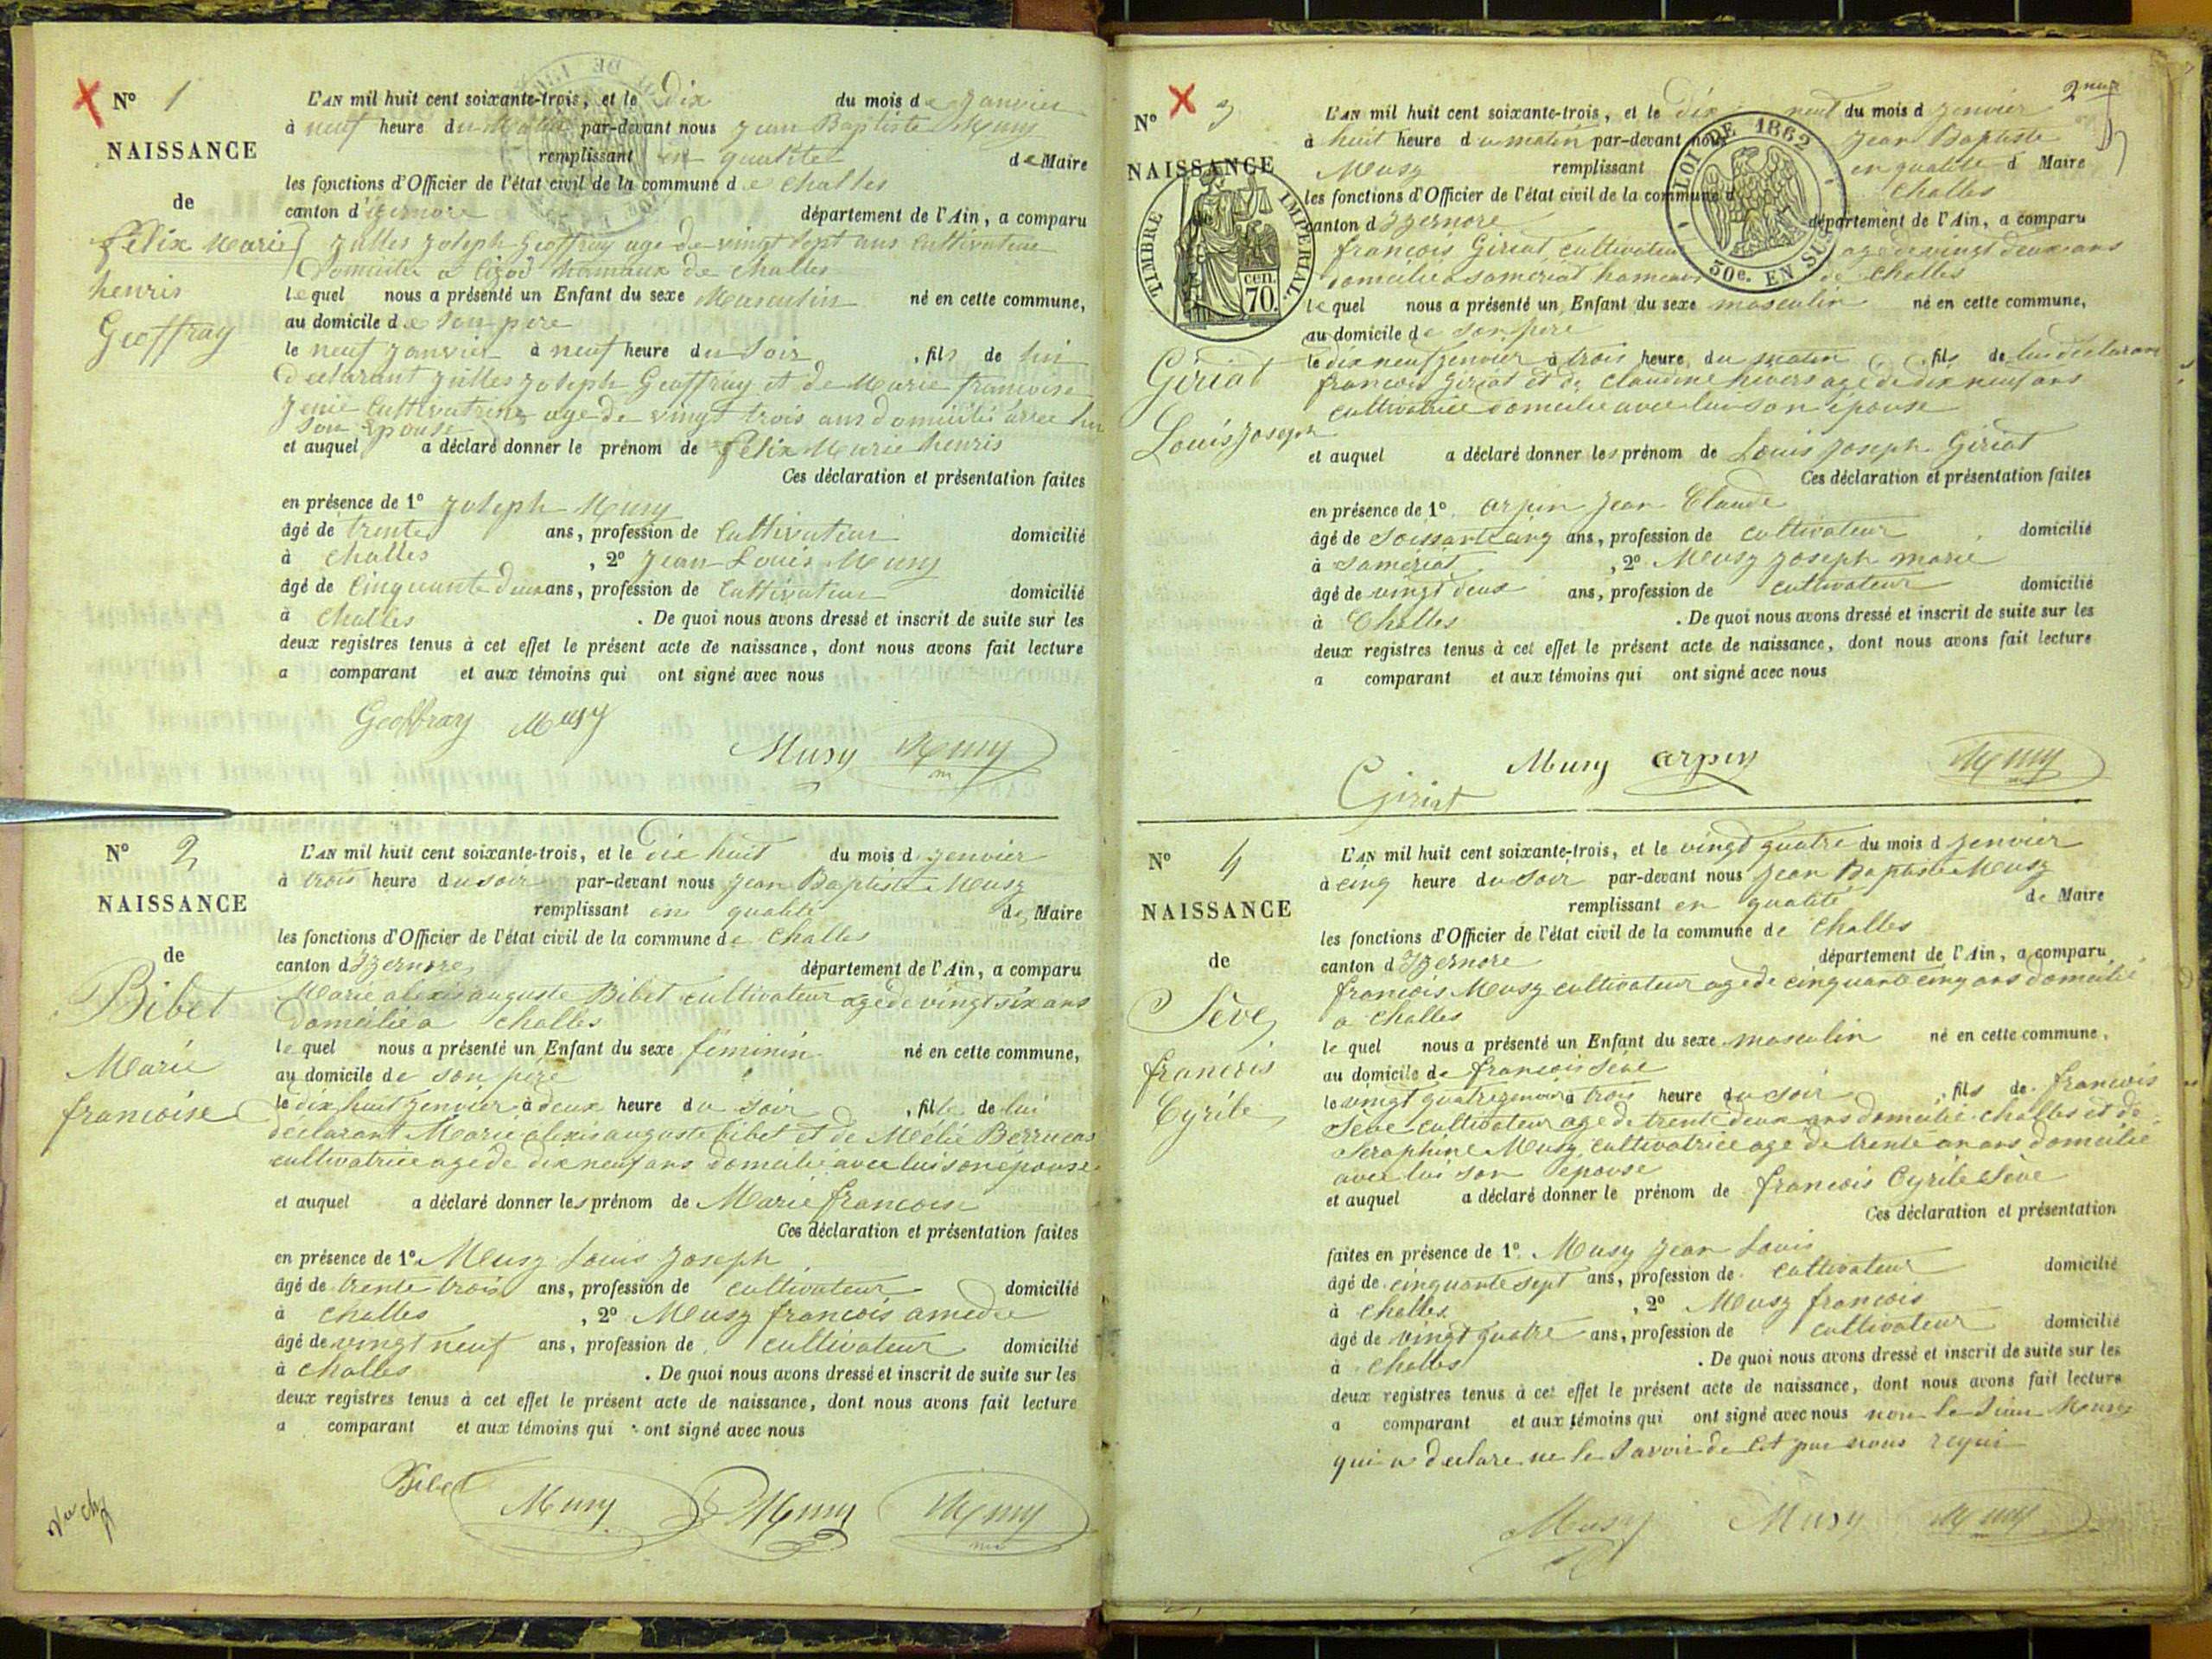 N° 1
NAISSANCE
de
félix Marie
henris
Geoffray
L'AN mil huit cent soixante-trois, et le Dix du mois de Janvier
à neuf heure du Matin par-devant nous Jean Baptiste Musy
remplissant en qualité de Maire
les fonctions d'Officier de l'état civil de la commune de Challes
canton d'izernore département de l'Ain, a comparu
Julles Joseph Geoffray age de vingt sept ans Cultivateur
Domicilié a hamaux de Challes
lequel nous a présenté un Enfant du sexe Masculin né en cette commune,
au domicile de Son pere
le neuf Janvier à neuf heure du Soir, fils de lui
Declarant Julles Joseph Geoffray et de Marie francoise
Jenie Cultivatrice age de vingt trois ans domicilié avec lui
Son Epouse
et auquel a déclaré donner le prénom de félix Marie henris
Ces déclaration et présentation faites
en présence de 1° Joseph Musy
âgé de trente ans, profession de Cultivateur domicilié
à Challes, 2° Jean Louis Musy
âgé de Cinquante deux ans, profession de Cultivateur domicilié
à Challes. De quoi nous avons dressé et inscrit de suite sur les
deux registres tenus à cet effet le présent acte de naissance, dont nous avons fait lecture
a comparant et aux témoins qui ont signé avec nous
Geoffray Musy
Musy Musy
N° 2
NAISSANCE
de
Bibet
Marie
francoise
L'AN mil huit cent soixante-trois, et le dix huit du mois d Jenvier
à trois heure du soir par-devant nous Jean Baptiste Musy
remplissant en qualité de Maire
les fonctions d'Officier de l'état civil de la commune de Challes
canton d Izernore département de l'Ain, a comparu
Marie alexis auguste Bibet cultivateur age de vingt six ans
Domicilié a Challes
lequel nous a présenté un Enfant du sexe féminin né en cette commune,
au domicile de son pere
le dix huit Jenvier à deux heure du soir, fille de lui
declarant Marie alexis auguste bibet et de Mélie
cultivatrice age de dix neuf ans domicilié avec lui son épouse
et auquel a déclaré donner les prénom de Marie francoise
Ces déclaration et présentation faites
en présence de 1° Musy Louis Joseph
âgé de trente trois ans, profession de cultivateur domicilié
à Challes, 2° Musy francois amedie
âgé de vingt neuf ans, profession de cultivateur domicilié
à Challes. De quoi nous avons dressé et inscrit de suite sur les
deux registres tenus à cet effet le présent acte de naissance, dont nous avons fait lecture
a comparant et aux témoins qui ont signé avec nous
Bibet Musy Musy Musy
2me
N° 3
NAISSANCE
TIMBRE IMPÉRIAL.
cen.
70.
LOI DE 1862
50c. EN SUS
Giriat
Louis Joseph
L'AN mil huit cent soixante-trois, et le dix neuf du mois d Jenvier
à huit heure du matin par-devant nous Jean Baptiste
Musy remplissant en qualité d Maire
les fonctions d'Officier de l'état civil de la commune d Challes
canton d Izernore département de l'Ain, a comparu
francois Giriat cultivateur age de vingt deux ans
domicilié a samériat hameaux de Challes
lequel nous a présenté un Enfant du sexe masculin né en cette commune,
au domicile de son pere
le dix neuf Jenvier à trois heure du matin, fils de lui declarant
francois Giriat et de claudine age de dix neuf ans
cultivatrice domicilié avec lui son épouse
et auquel a déclaré donner les prénom de Louis Joseph Giriat
Ces déclaration et présentation faites
en présence de 1° arpin Jean Claude
âgé de soissante cinq ans, profession de cultivateur domicilié
à samériat, 2° Musy Joseph marie
âgé de vingt deux ans, profession de cultivateur domicilié
à Challes. De quoi nous avons dressé et inscrit de suite sur les
deux registres tenus à cet effet le présent acte de naissance, dont nous avons fait lecture
a comparant et aux témoins qui ont signé avec nous
Giriat Musy arpin Musy
N° 4
NAISSANCE
de
Sève
francois
Cyrile
L'AN mil huit cent soixante-trois, et le vingt quatre du mois d Jenvier
à cinq heure du soir par-devant nous Jean Baptiste Musy
remplissant en qualité de Maire
les fonctions d'Officier de l'état civil de la commune de Challes
canton d Izernore département de l'Ain, a comparu
francois Musy cultivateur age de cinquante cinq ans domicilié
a Challes
lequel nous a présenté un Enfant du sexe masculin né en cette commune,
au domicile de francois Sève
le vingt quatre jenvier à trois heure du soir, fils de francois
Sève cultivateur age de trente deux ans domicilié challes et de
Seraphine Musy cultivatrice age de trente un ans domicilié
avec lui son épouse
et auquel a déclaré donner le prénom de francois Cyrile Sève
Ces déclaration et présentation
faites en présence de 1° Musy Jean Louis
âgé de cinquante sept ans, profession de cultivateur domicilié
à Challes, 2° Musy francois
âgé de vingt quatre ans, profession de cultivateur domicilié
à Challes. De quoi nous avons dressé et inscrit de suite sur les
deux registres tenus à cet effet le présent acte de naissance, dont nous avons fait lecture
a comparant et aux témoins qui ont signé avec nous non le Sieur Musy
qui a declare ne le Savoir de Cet par nous requi
Musy Musy Musy